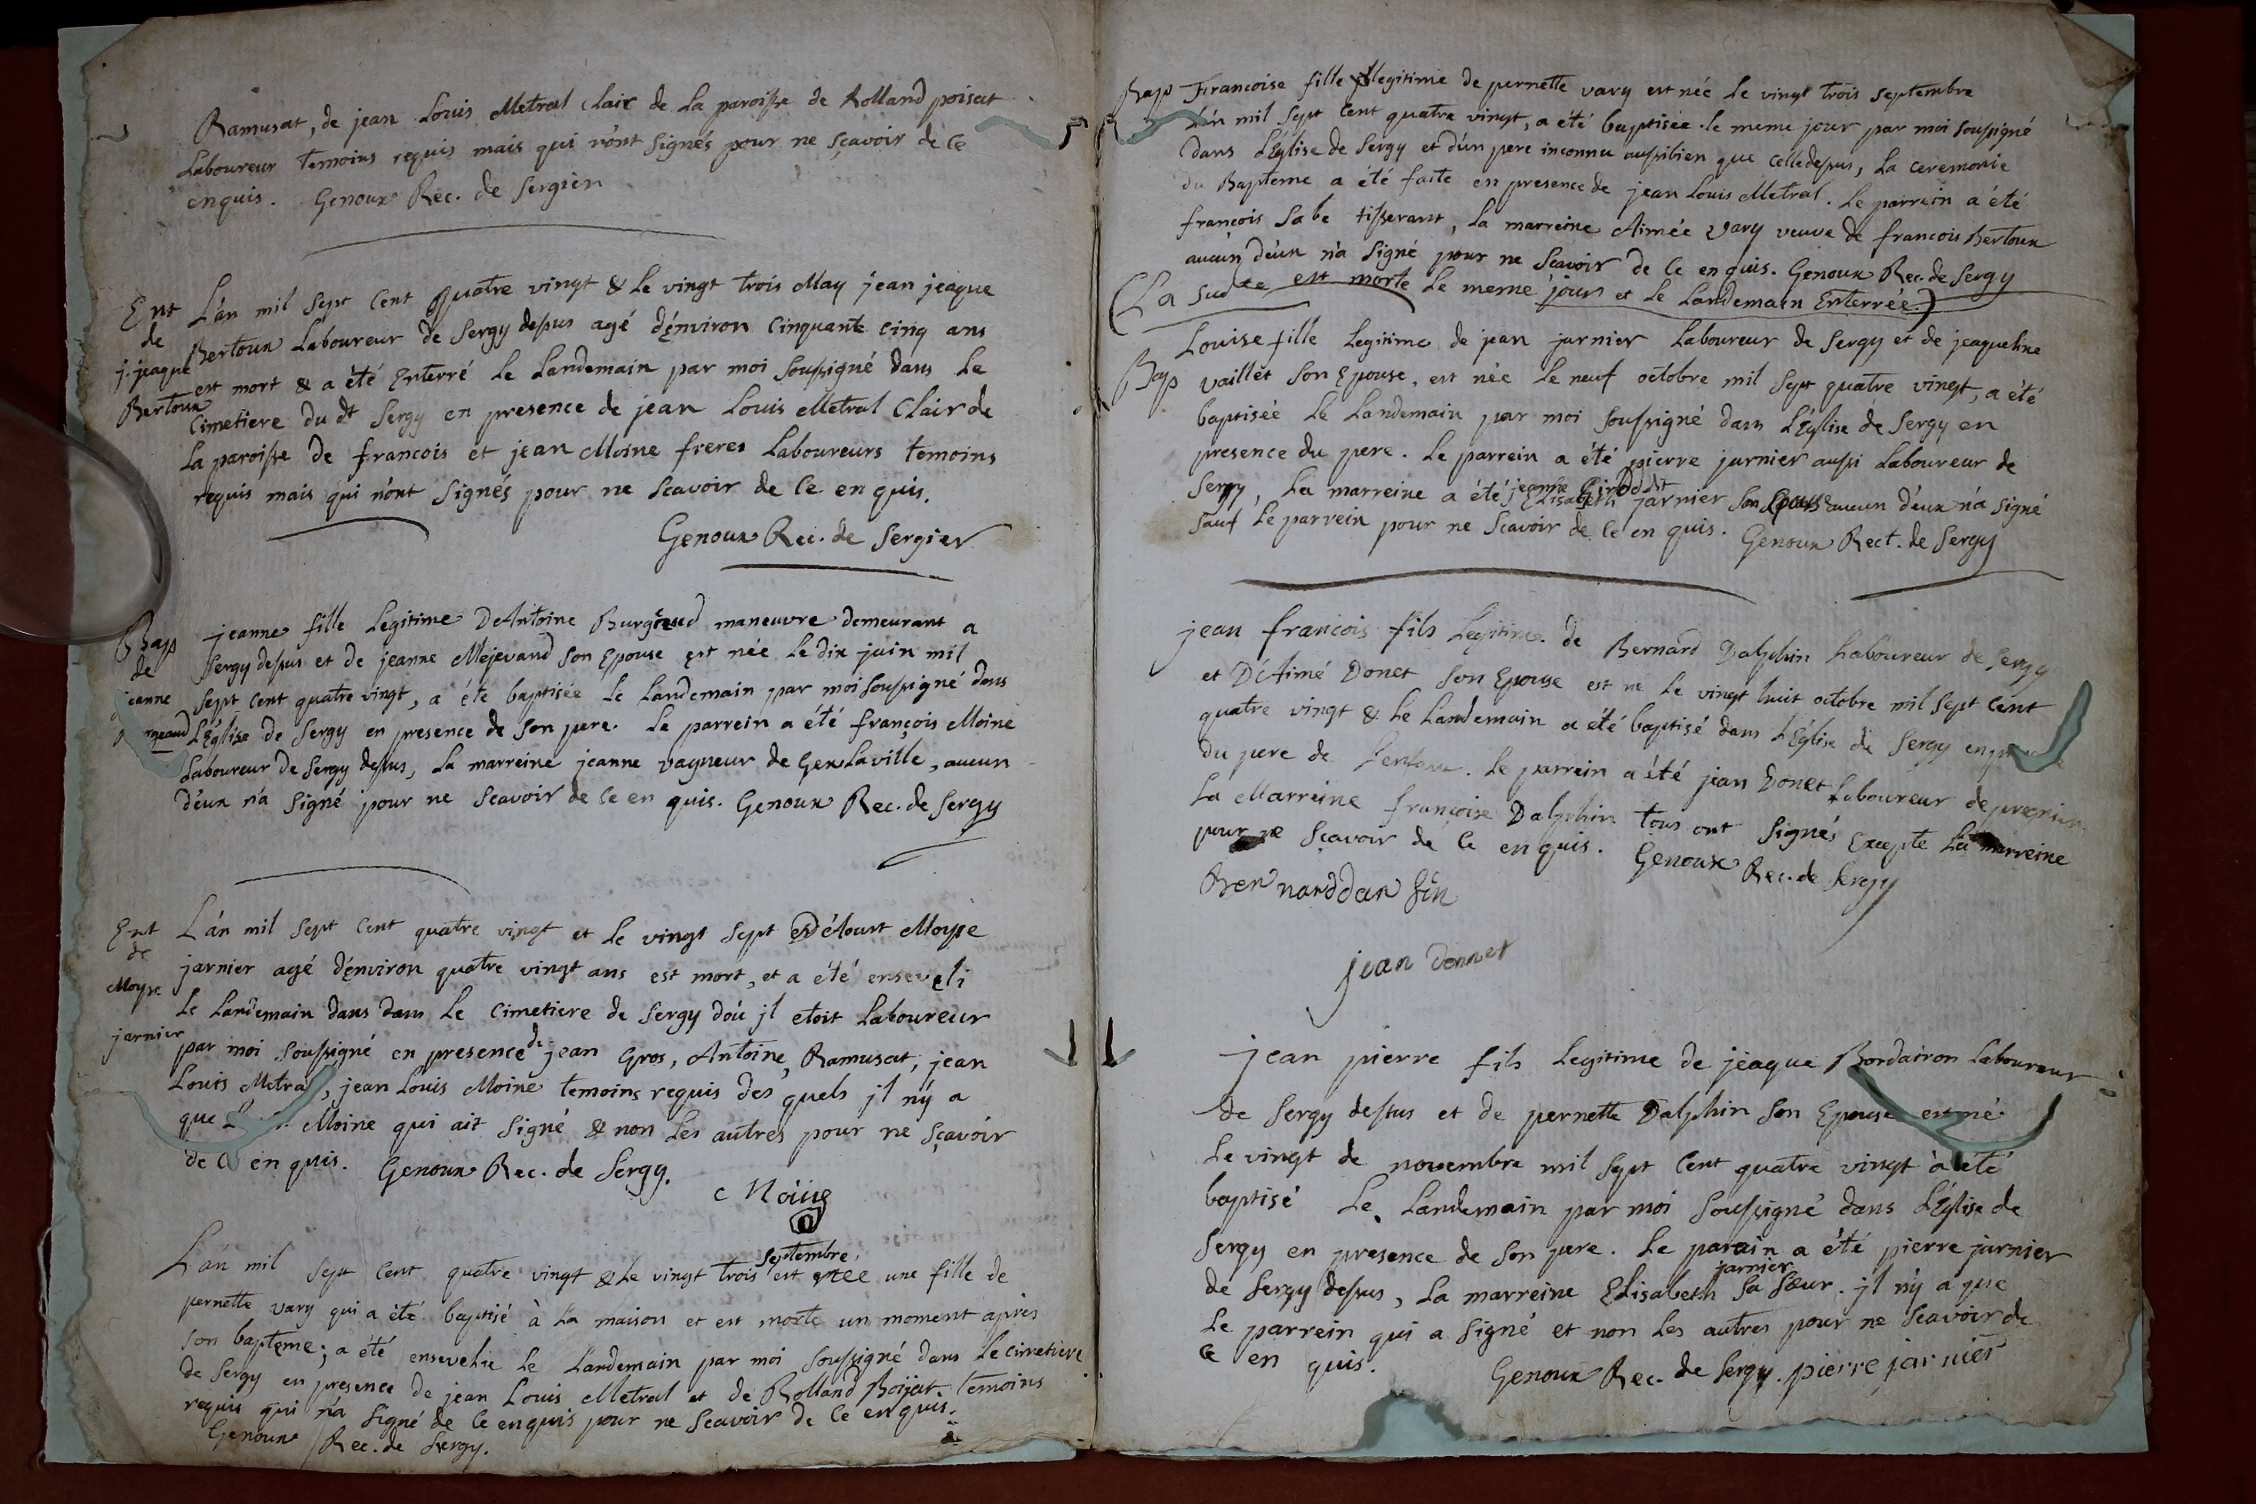 Ramusat, de jean Louis Metral Clair de La paroisse de Rolland poisat
Laboureur temoins requis mais qui n'ont Signés pour ne sçavoir de Ce
enquis. Genoux Rec. de Sergier
Ent
de
j. jeaque
Bertoux
L'an mil Sept Cent Quatre vingt & le vingt trois May jean jeaque
Bertoux Laboureur de Sergy dessus agé d'environ Cinquante cinq ans
est mort & a été Enterré Le Landemain par moi Soussigné dans Le
Cimetiere du dt Sergy en presence de jean Louis Metral Clair de
La paroisse de francois et jean Moine freres Laboureurs temoins
requis mais qui n'ont Signés pour ne Scavoir de Ce enquis.
Genoux Rec. de Sergier
Bap
de
jeanne
jeanne fille Legitime D'Antoine Burgeaud maneuvre demeurant a
Sergy dessus et de jeanne Mejevand Son Epouse est née Le dix juin mil
Sept Cent quatre vingt, a été baptisée Le Landemain par moi Soussigné dans
L'Eglise de Sergy en presence de Son pere. Le parrein a été françois Moine
Laboureur de Sergy dessus, La marreine jeanne vagneur de Gex Laville, aucun
d'eux n'a Signé pour ne Scavoir de Ce en quis. Genoux Rec. de Sergy
Ent
de
Moyse
jarnier
L'an mil Sept Cent quatre vingt et Le vingt Sept d'Aoust Moyse
jarnier agé d'environ quatre vingt ans est mort, et a été enseveli
Le Landemain dans dans Le Cimetiere de Sergy d'où jl etoit Laboureur
par moi Soussigné en presence de jean Gros, Antoine Ramusat, jean
Louis Metral, jean Louis Moine temoins requis des quels jl n'y a
que Moine qui ait Signé & non Les autres pour ne sçavoir
de Ce en quis. Genoux Rec. de Sergy.
Moine
L'an mil Sept Cent quatre vingt & Le vingt trois Septembre est née une fille de
pernette vary qui a été baptisé à La maison et est morte un moment après
Son bapteme; a été ensevelie Le Landemain par moi Soussigné dans Le Cimetiere
de Sergy en presence de jean Louis Metral et de Rolland Boijat temoins
requis qui n'a Signé de Ce enquis pour ne Scavoir de Ce enquis.
Genoux Rec. de Sergy.
Bap
Francoise fille illegitime de pernette vary est née Le vingt trois Septembre
L'an mil Sept Cent quatre vingt, a été baptisée le meme jour par moi Soussigné
dans L'Eglise de Sergy et d'un pere inconnu aussibien que Celledessus, La ceremonie
du Bapteme a été faite en presence de jean Louis Metral. Le parrein a été
françois Sabe tisserant, La marreine Aimée Vary veuve de francois Bertoux
aucun d'eux n'a Signé pour ne Scavoir de Ce enquis. Genoux Rec. de Sergy
(La Sudte est morte Le meme jour et Le Landemain Enterrée.)
Bap
Louise fille Legitime de jean jarnier Laboureur de Sergy et de jeaqueline
vaillet Son Epouse, est née Le neuf octobre mil Sept quatre vingt, a été
baptisée Le Landemain par moi Soussigné dans L'Eglise de Sergy en
presence du pere. Le parrein a été pierre jarnier aussi Laboureur de
Sergy, La marreine a été jeanne Elisabeth jarnier Son aucun d'eux n'a Signé
Sauf Le parrein pour ne Scavoir de Ce en quis. Genoux Rect. de Sergy
jean francois fils Legitime de Bernard Dalphin Laboureur de Sergy
et D'Aimé Donet Son Epouse est né Le vingt huit octobre mil Sept Cent
quatre vingt & Le Landemain a été baptisé dans L'Eglise de Sergy en
du pere de L'enfant. Le parrein a été jean Donet Laboureur de
La Marreine françoise Dalphin tous ont Signés Excepte La marreine
pour ne Sçavoir de Ce enquis. Genoux Rec. de Sergy
Ber nard dar fin
jean donnet
jean pierre fils Legitime de jeaque Bordairon Laboureur
de Sergy dessus et de pernette Dalphin Son Epouse est né
Le vingt de novembre mil Sept Cent quatre vingt a été
baptisé Le Landemain par moi Soussigné dans L'Eglise de
Sergy en presence de Son pere. Le parain a été pierre jarnier
de Sergy dessus, La marreine Elisabeth jarnier Sa Sœur. jl n'y a que
Le parrein qui a Signé et non Les autres pour ne Scavoir de
Ce en quis. Genoux Rec. de Sergy. pierre jarnier